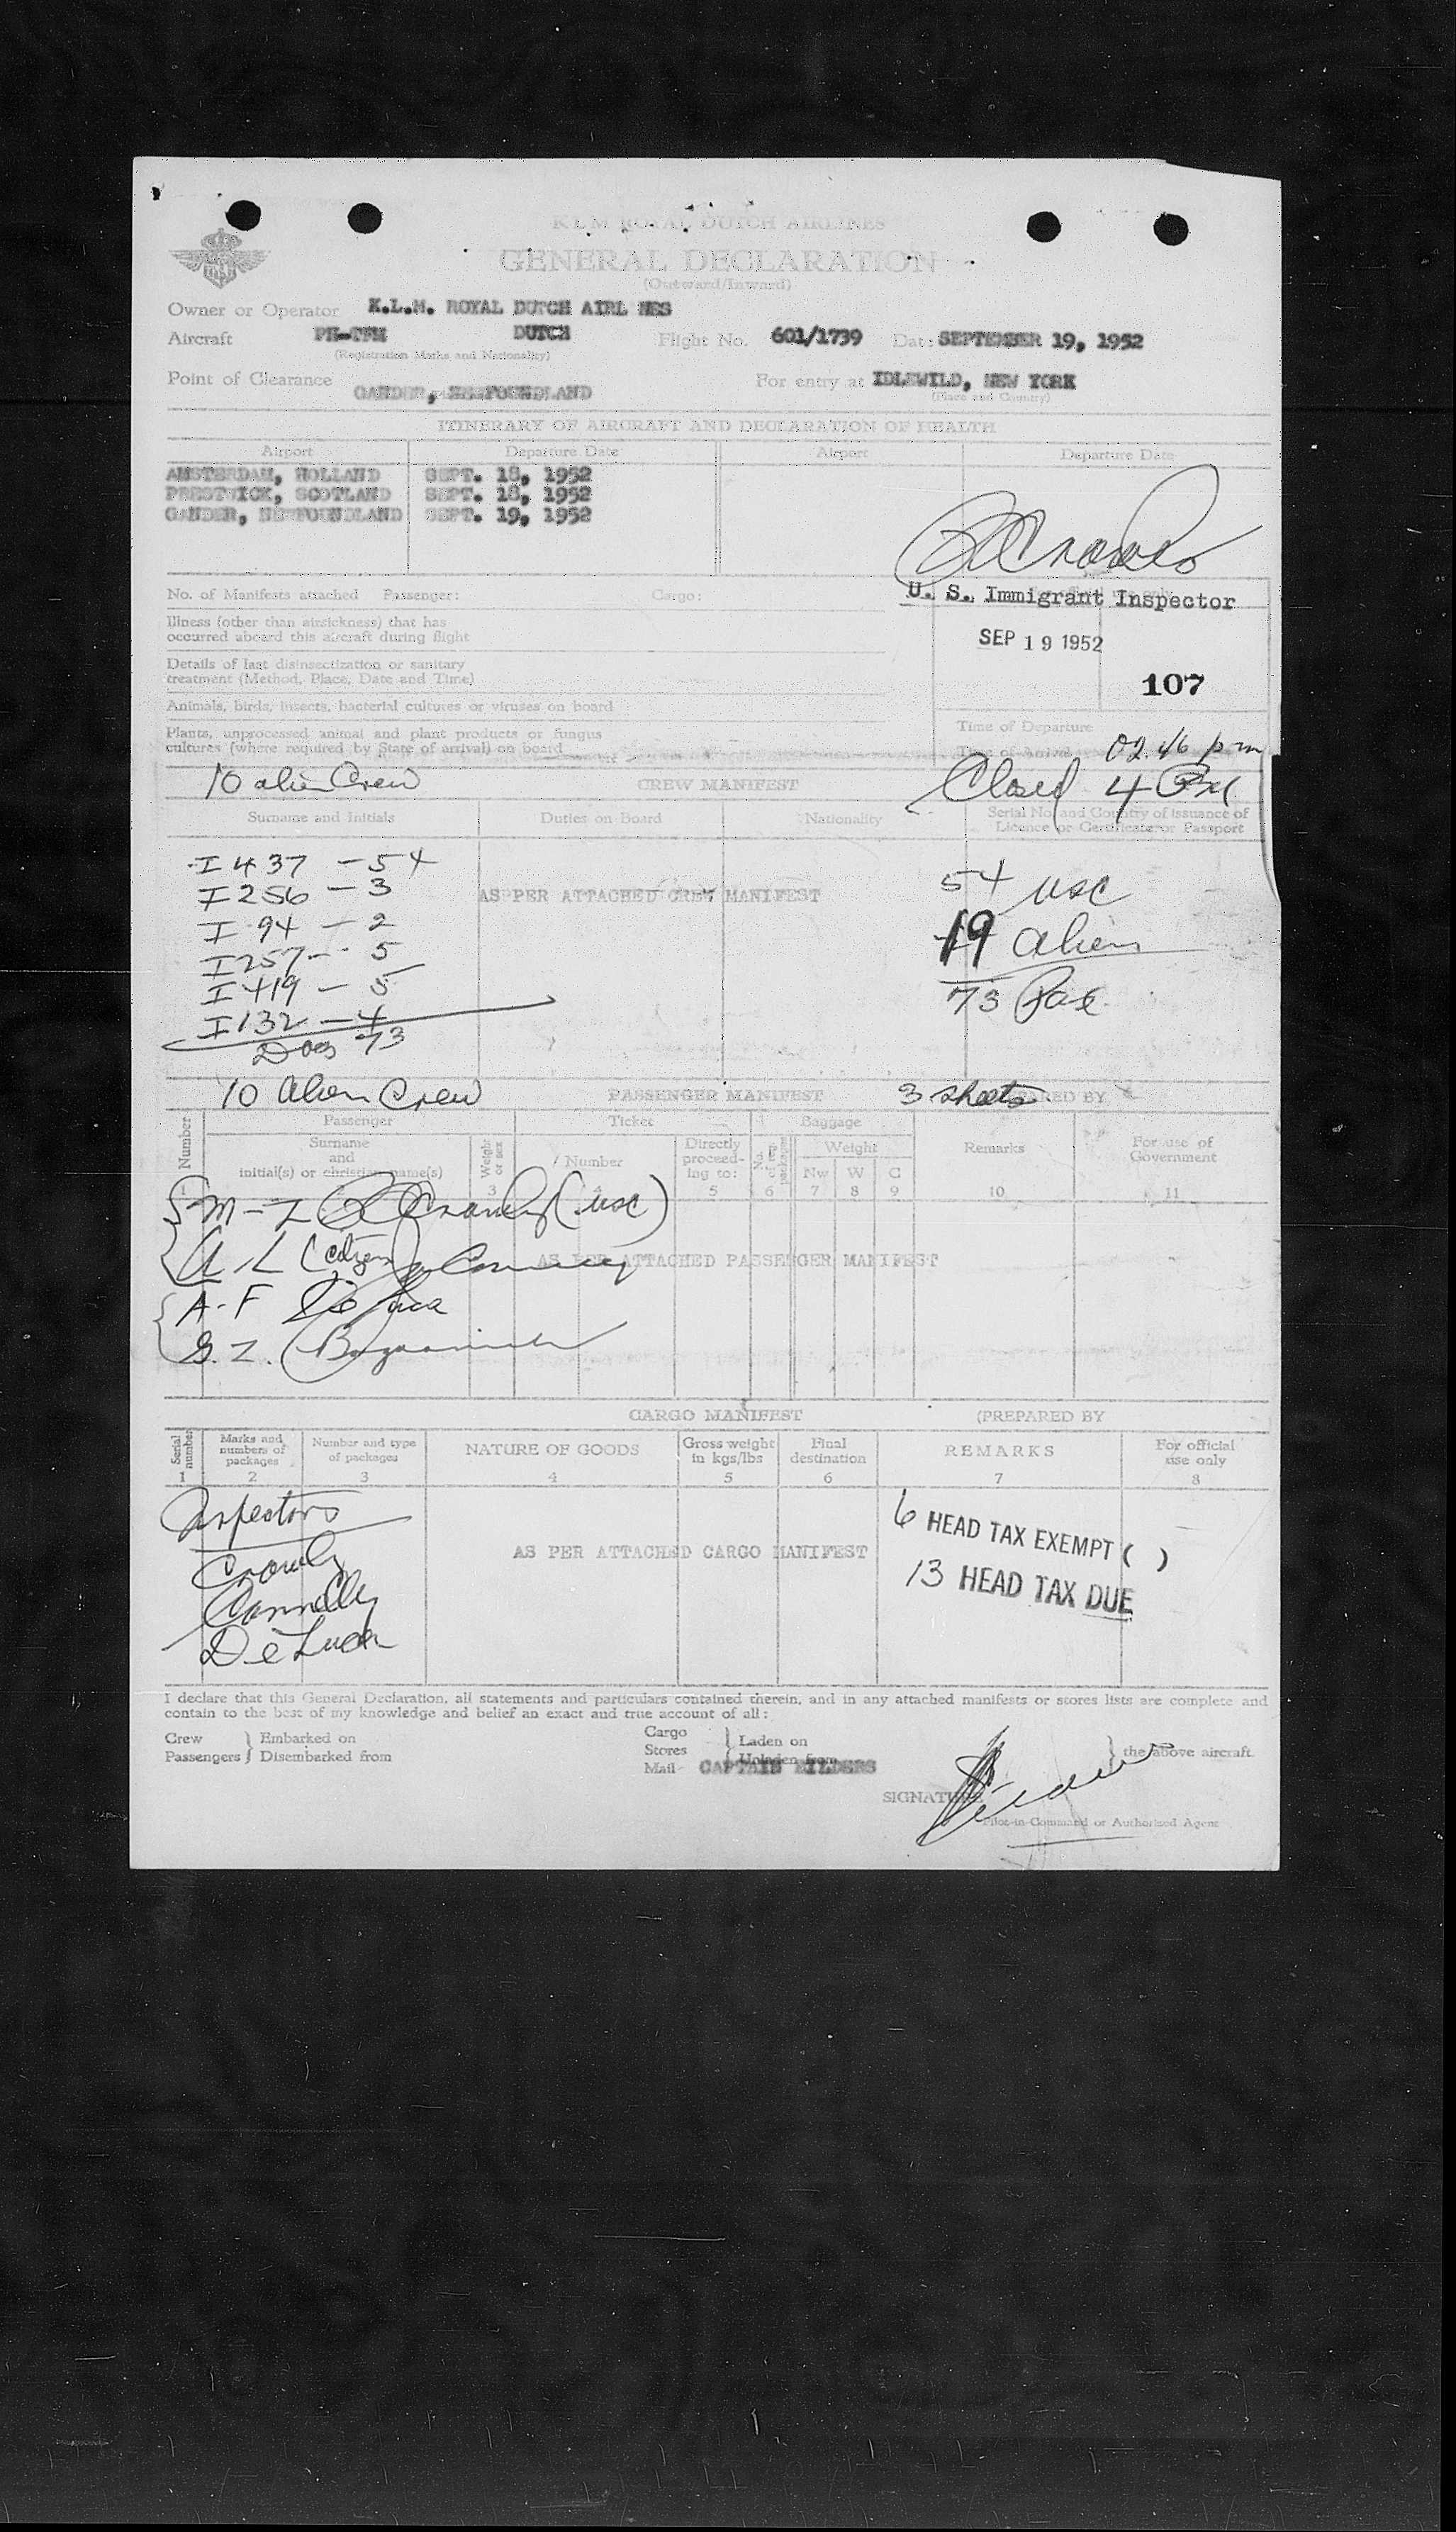 KLM ROYAL DUTCH AIRLINES
GENERAL DECLARATION
(Outward/Inward)
Owner or Operator K.L.M. ROYAL DUTCH AIRL NES
Aircraft PH-TFM DUTCH Flight No. 601/1739 Date SEPTEMBER 19, 1952
(Registration Marks and Nationality)
Point of Clearance GANDER, NEWFOUNDLAND For entry at IDLEWILD, NEW YORK
(Place and Country)
ITINERARY OF AIRCRAFT AND DECLARATION OF HEALTH
Airport Departure Date Airport Departure Date
AMSTERDAM, HOLLAND SEPT. 18, 1952
PRESTWICK, SCOTLAND SEPT. 18, 1952
GANDER, NEWFOUNDLAND SEPT. 19, 1952
No. of Manifests attached Passenger: Cargo:
U. S. Immigrant Inspector
Illness (other than airsickness) that has
occurred aboard this aircraft during flight
SEP 19 1952
Details of last disinsectization or sanitary
treatment (Method, Place, Date and Time)
107
Animals, birds, insects, bacterial cultures or viruses on board
Plants, unprocessed animal and plant products or fungus
cultures (where required by State of arrival) on board
Time of Departure
Time of Arrival 02.46 pm
10 alien Crew CREW MANIFEST Closed 4 PM
Surname and Initials Duties on Board Nationality Serial No. and Country of Issuance of
Licence or Certificate or Passport
I 437 - 54
I 256 - 3
I 94 - 2
I 257 - 5
I 419 - 5
I 132 - 4
73
AS PER ATTACHED CREW MANIFEST
54 USC
19 alien
73 Pax
10 Alien Crew PASSENGER MANIFEST 3 sheets
Number Passenger Ticket Baggage
Surname
and
initial(s) or christian name(s)
Weight or sex Number Directly
proceed-
ing to:
No. of reg. packages Weight Remarks For use of
Government
Nw W C
3 4 5 6 7 8 9 10 11
M-Z Crowley (USC)
A-L (citizen) Connelly
AS PER ATTACHED PASSENGER MANIFEST
A-F De Luca
G. Z.
CARGO MANIFEST (PREPARED BY
Serial number Marks and
numbers of
packages
Number and type
of packages
NATURE OF GOODS Gross weight
in kgs/lbs
Final
destination
REMARKS For official
use only
1 2 3 4 5 6 7 8
Inspectors
Crowley
Connelly
De Luca
AS PER ATTACHED CARGO MANIFEST
6 HEAD TAX EXEMPT ( )
13 HEAD TAX DUE
I declare that this General Declaration, all statements and particulars contained therein, and in any attached manifests or stores lists are complete and
contain to the best of my knowledge and belief an exact and true account of all:
Crew Embarked on Cargo Laden on
Passengers Disembarked from Stores Unladen from the above aircraft.
Mail CAPTAIN EILDERS
SIGNATURE
Pilot-in-Command or Authorized Agent